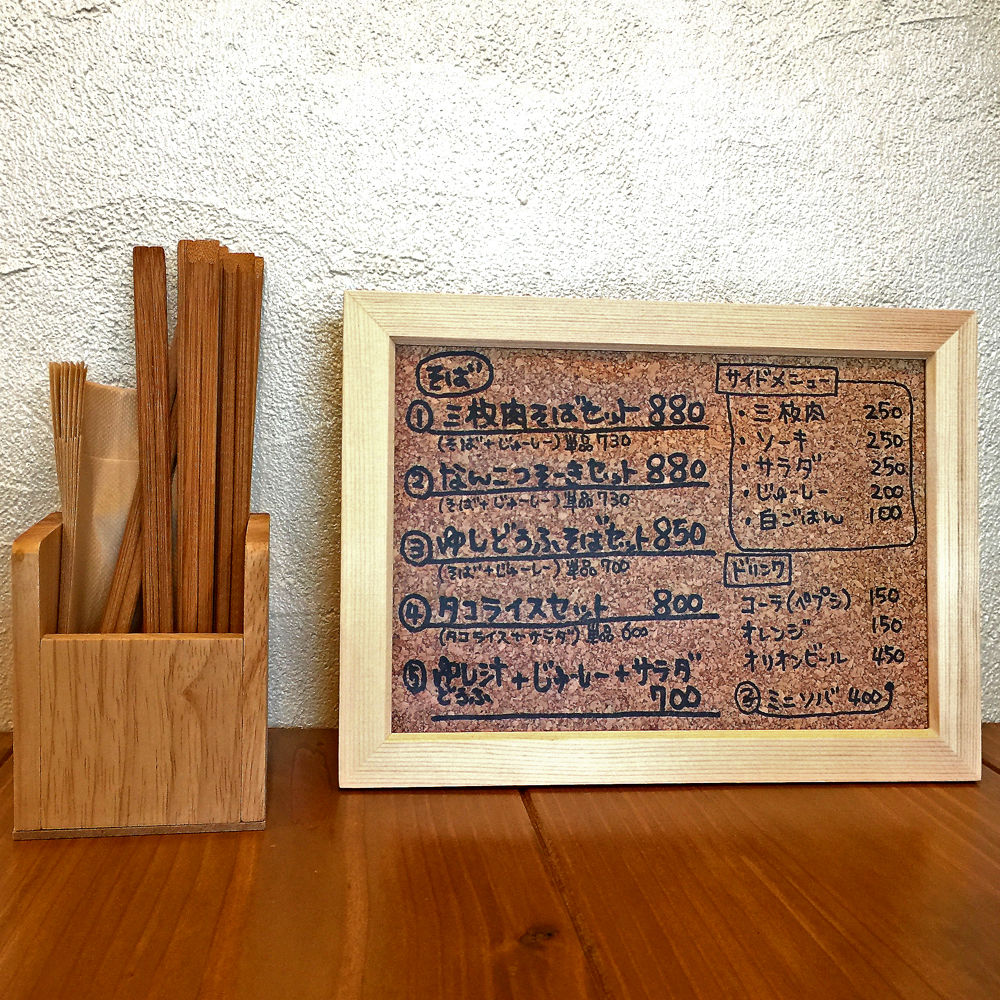 そば
① 三枚肉そばセット 880
(そば+じゅーしー) 単品 730
② なんこつそーきセット 880
(そば+じゅーしー) 単品 730
③ ゆしどうふそばセット 850
(そば+じゅーしー) 単品 700
④ タコライスセット 800
(タコライス サラダ) 単品 600
⑤ ゆし汁+じゅーしー+サラダ
どうふ 700
サイドメニュー
・三枚肉 250
・ソーキ 250
・サラダ 250
・じゅーしー 200
・白ごはん 100
ドリンク
コーラ(ペプシ) 150
オレンジ 150
オリオンビール 450
ミニソバ 400